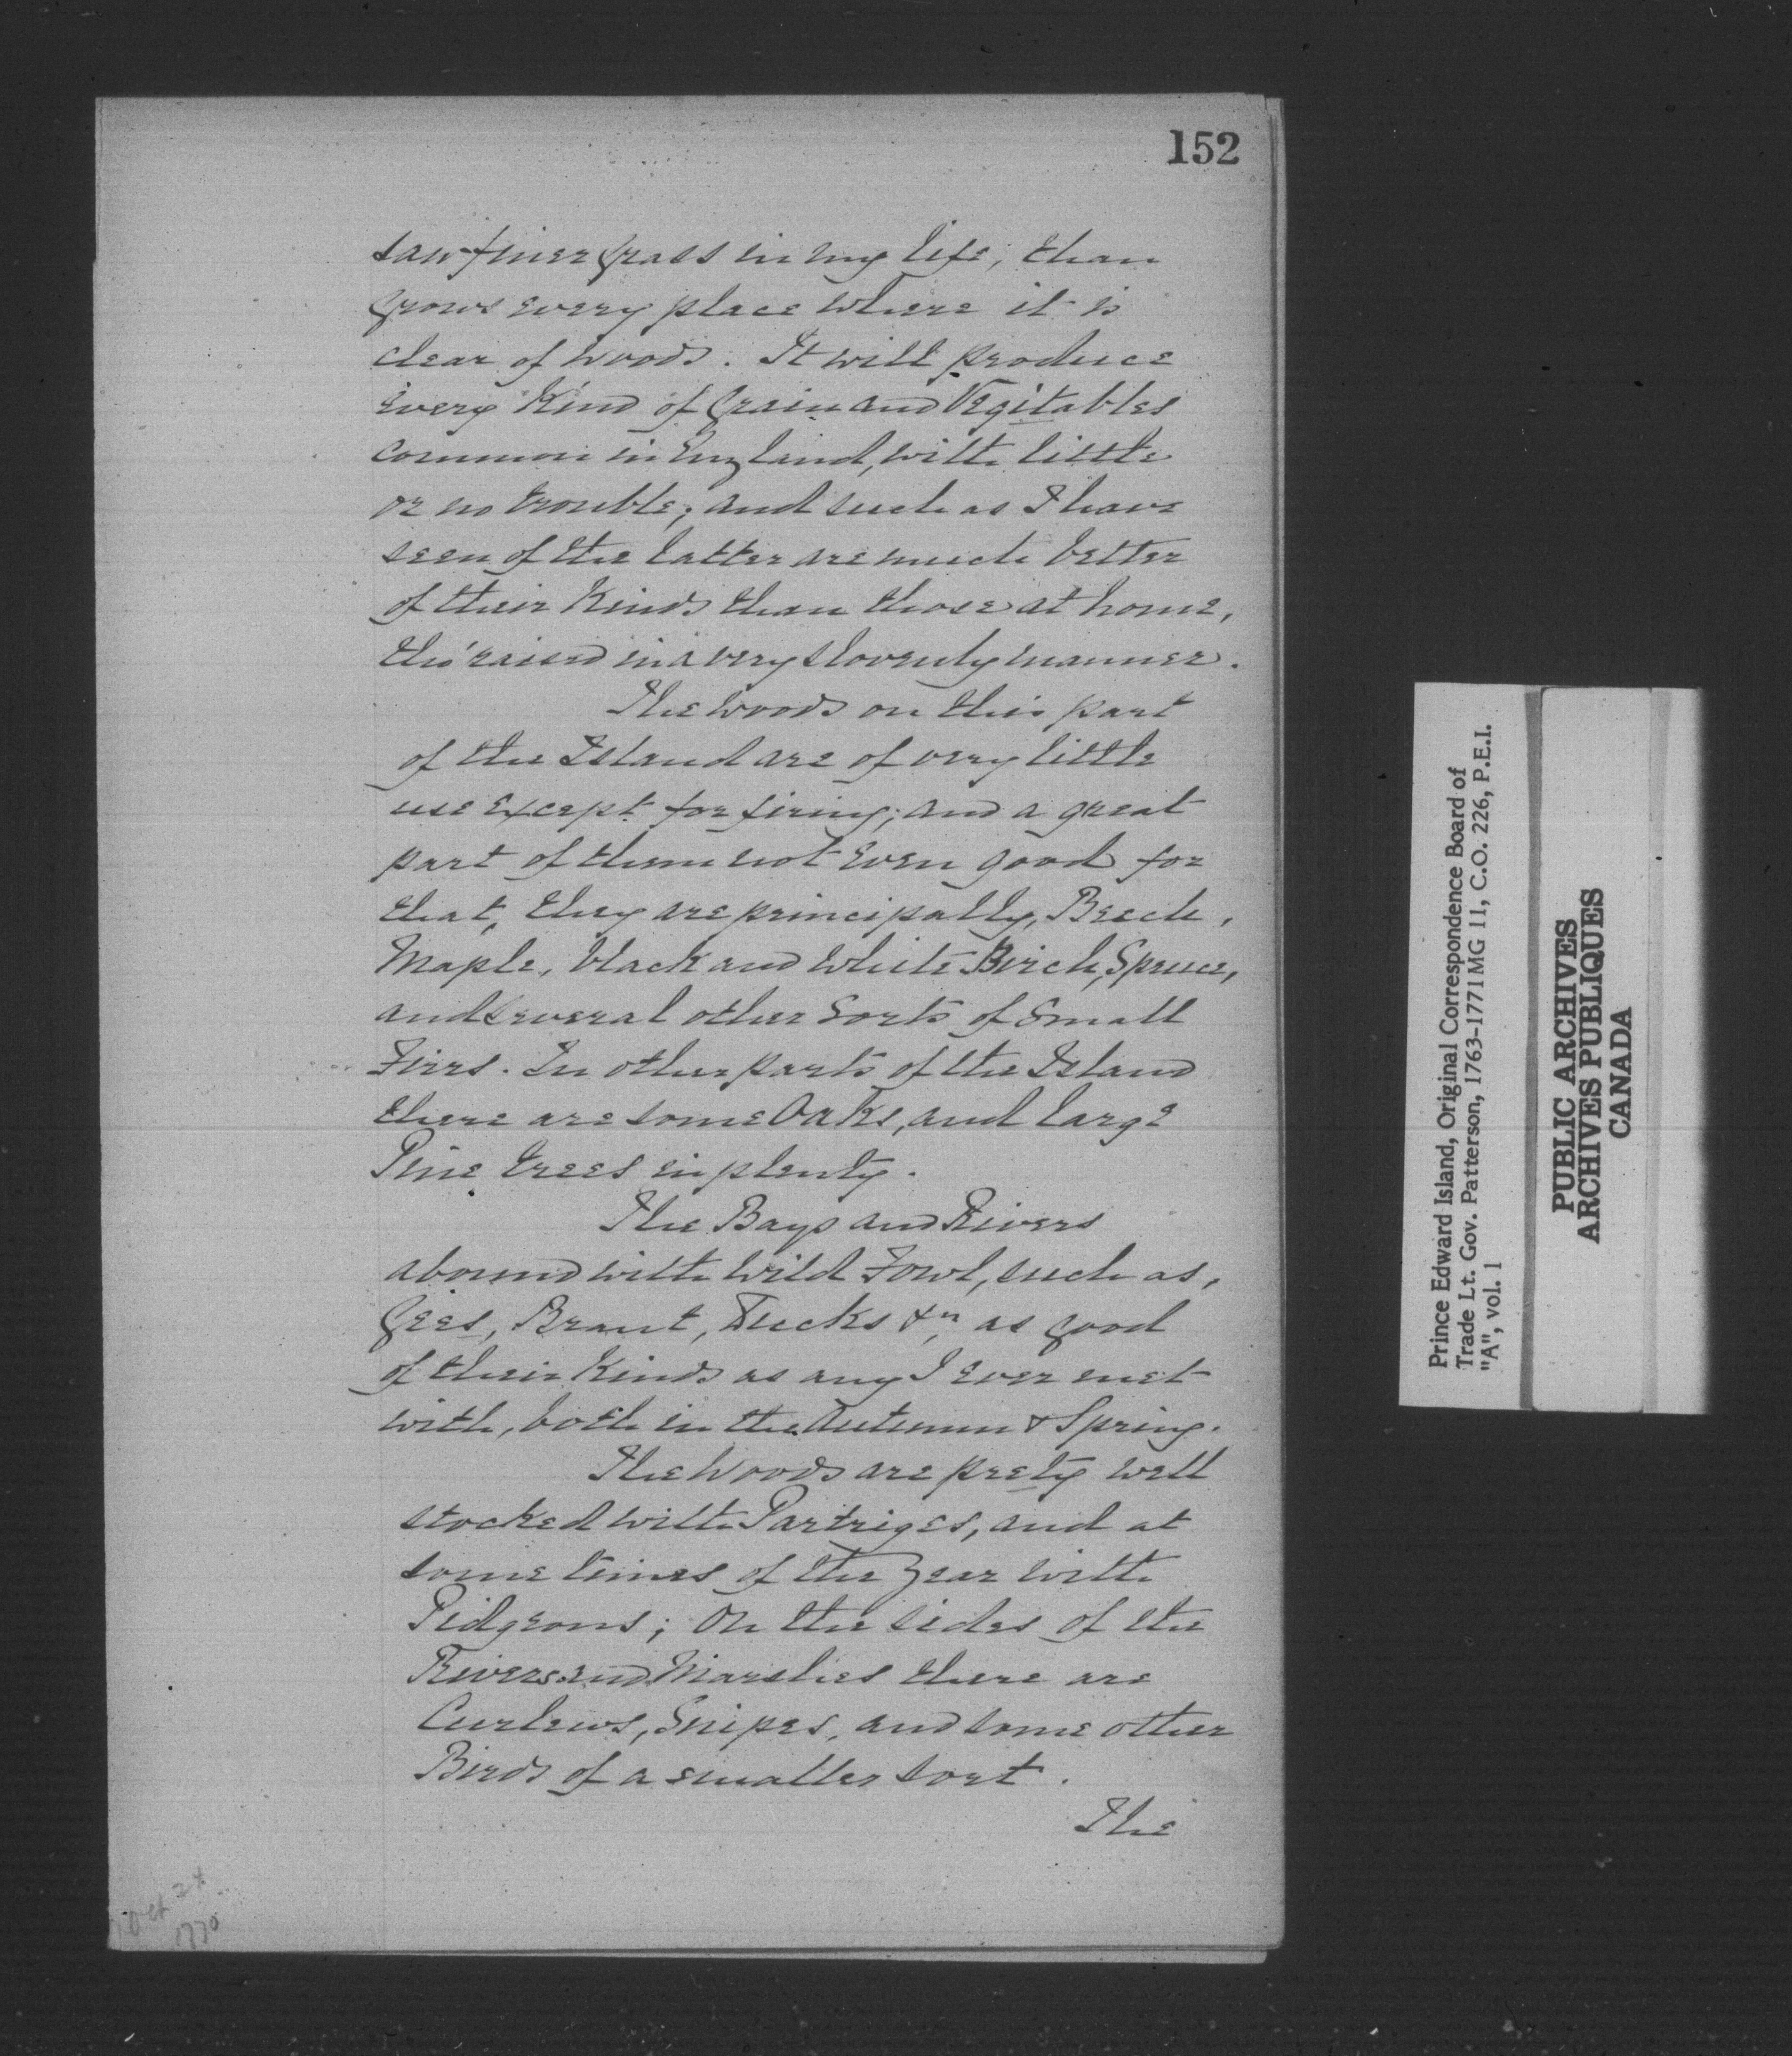 152
saw finer Grass in my life, than
Grows every place where it is
clear of Woods. It will produce
Every Kind of Grain and Vegitables
common in England, with little
or no trouble; and such as I have
seen of the latter are much better
of their Kinds than those at home,
tho' raised in a very slovenly manner.
The Woods on this part
of the Island are of very little
use Except for firing; and a great
part of them not Even good for
that, they are principally, Beech,
Maple, black and White Birch, Spruce,
and several other Sorts of Small
Firrs. In other parts of the Island
there are some Oaks, and large
Pine trees in plenty.
The Bays and Rivers
abound with Wild Fowl, such as,
Gees, Brant, Ducks &c, as good
of their Kinds as any I Ever met
with, both in the Autumn & Spring.
The Woods are prety well
stocked with Partriges, and at
some times of the Year with
Pidgeons; On the sides of the
Rivers and Marshes there are
Curlews, Snipes, and some other
Birds of a smaller sort.
The
Oct 24
1770
Prince Edward Island, Original Correspondence Board of
Trade Lt. Gov. Patterson, 1763-1771 MG 11, C.O. 226, P.E.I.
"A", vol. 1
PUBLIC ARCHIVES
ARCHIVES PUBLIQUES
CANADA